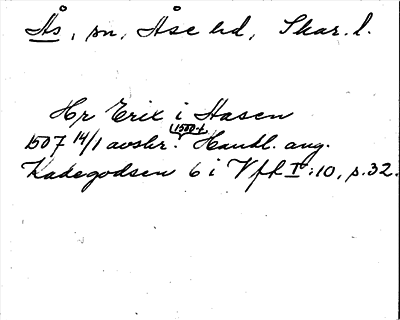 Ås, sn, Åse hd, Skar. l.
Hr Erik i Hasen
1507 14/1 avskr. (1500-t) Handl. ang.
Kadegodsen 6 i Vfh I:10, p.32.